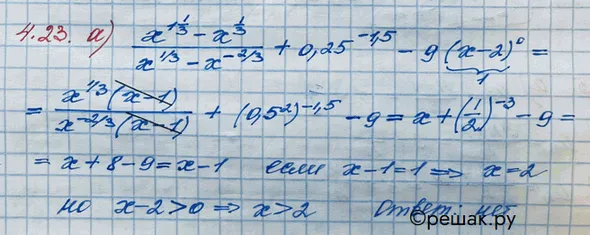 4.23. а) (x^{1 1/3} - x^{1/3})/(x^{1/3} - x^{-2/3}) + 0,25^{-1,5} - 9 (x-2)^0 =
1
= (x^{1/3}(x-1))/(x^{-2/3}(x-1)) + (0,5^2)^{-1,5} - 9 = x + (1/2)^{-3} - 9 =
= x + 8 - 9 = x - 1 если x - 1 = 1 => x = 2
но x - 2 > 0 => x > 2 ответ: нет
©решак.ру